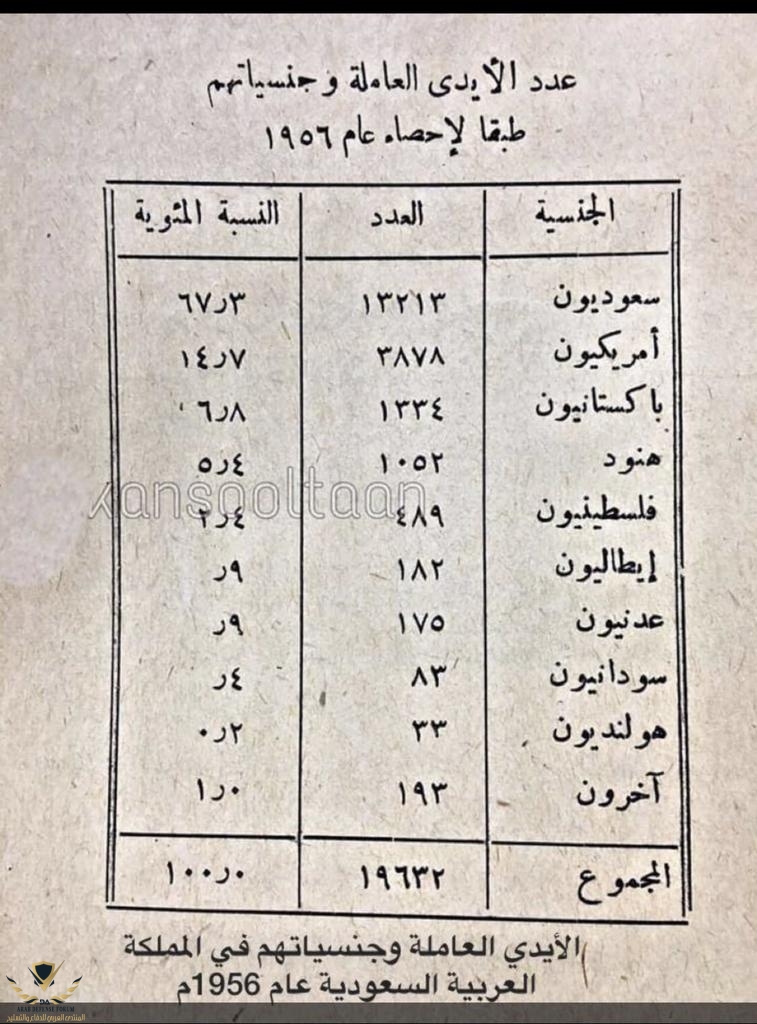 عدد الأيدى العاملة وجنسياتهم
طبقا لإحصاء عام ١٩٥٦
الجنسية العدد النسبة المئوية
سعوديون ١٣٢١٣ ٦٧٫٣
أمريكيون ٣٨٧٨ ١٤٫٧
باكستانيون ١٣٣٤ ٦٫٨
هنود ١٠٥٢ ٥٫٤
فلسطينيون ٤٨٩ ٢٫٤
إيطاليون ١٨٢ ٫٩
عدنيون ١٧٥ ٫٩
سودانيون ٨٣ ٫٤
هولنديون ٣٣ ٠٫٢
آخرون ١٩٣ ١٫٠
المجموع ١٩٦٣٢ ١٠٠٫٠
xansaoltaan
الأيدي العاملة وجنسياتهم في المملكة
العربية السعودية عام 1956م
DA
ARAB DEFENSE FORUM
المنتدى العربي للدفاع والتسليح